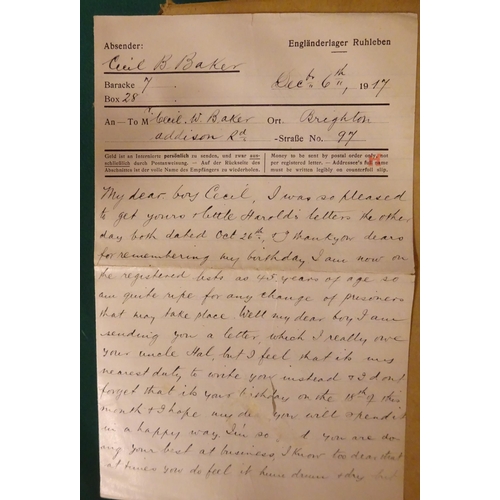 Absender:
Engländerlager Ruhleben
Cecil B. Baker
Baracke 7
Decbr 6th, 1917
Box 28
An — To Mr Cecil. W. Baker Ort. Brighton
addison Rd -Straße No. 97
Geld ist an Internierte persönlich zu senden, und zwar ausschließlich durch Postanweisung. — Auf der Rückseite des Abschnittes ist der volle Name des Empfängers zu wiederholen.
Money to be sent by postal order only not per registered letter. — Addressee's full name must be written legibly on counterfoil slip.
My dear boy Cecil, I was so pleased
to get yours & little Harold's letters the other
day both dated Oct 26th, & I thank you dears
for remembering my birthday I am now on
the registered lists as 45 years of age so
am quite ripe for any change of prisoners
that may take place Well my dear boy I am
sending you a letter, which I really owe
your uncle Hal, but I feel that its my
nearest duty to write you instead & I dont
forget that its your birthday on the 18th of this
month & I hope my de you will spend it
in a happy way. I'm so d you are do-
ing your best at business, I know too dear that
at times you do feel it hum drum